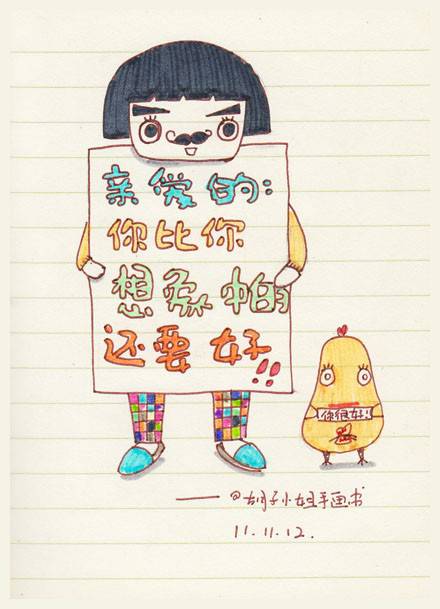 亲爱的:
你比你
想象中的
还要好!!
你很好!
——@胡子小姐手画书
11.11.12.